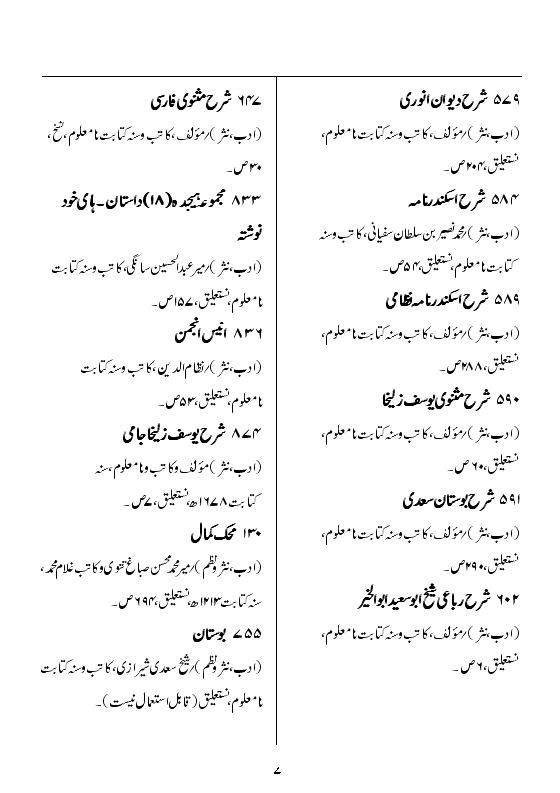 ۵۷۹ شرح دیوان انوری
(ادب،نثر)/مؤلف، کاتب وسنہ کتابت نامعلوم،
نستعلیق،۲۰۴ص۔
۵۸۴ شرح اسکندرنامہ
(ادب،نثر)/محمد نصیر بن سلطان سفیانی، کاتب وسنہ
کتابت نامعلوم،نستعلیق،۵۴ص۔
۵۸۹ شرح اسکندرنامہ نظامی
(ادب،نثر)/مؤلف، کاتب وسنہ کتابت نامعلوم،
نستعلیق،۲۸۸ص۔
۵۹۰ شرح مثنوی یوسف زلیخا
(ادب،نثر)/مؤلف، کاتب وسنہ کتابت نامعلوم،
نستعلیق،۶۰ص۔
۵۹۱ شرح بوستان سعدی
(ادب،نثر)/مؤلف، کاتب وسنہ کتابت نامعلوم،
نستعلیق،۲۹۰ص۔
۶۰۲ شرح رباعی شیخ ابوسعید ابوالخیر
(ادب،نثر)/مؤلف، کاتب وسنہ کتابت نامعلوم،
نستعلیق،۶ص۔
۶۴۷ شرح مثنوی فارسی
(ادب،نثر)/مؤلف، کاتب وسنہ کتابت نامعلوم،نسخ،
۳۰ص۔
۸۳۳ مجموعہ ہیجدہ(۱۸)داستان۔ہای خود
نوشتہ
(ادب،نثر)/میر عبدالحسین سانگی، کاتب وسنہ کتابت
نامعلوم،نستعلیق،۱۵۷ص۔
۸۳۶ انیس انجمن
(ادب،نثر)/نظام الدین، کاتب وسنہ کتابت
نامعلوم،نستعلیق،۵۲ص۔
۸۷۴ شرح یوسف زلیخا جامی
(ادب،نثر)مؤلف وکاتب ونامعلوم،سنہ
کتابت ۱۶۷۸ھ،نستعلیق،۷ص۔
۱۳۰ محک کمال
(ادب،نثرونظم)/میر محمد محسن صباغ تتوی وکاتب غلام محمد،
سنہ کتابت ۱۲۱۳ھ،نستعلیق،۶۹۴ص۔
۷۵۵ بوستان
(ادب،نثرونظم)/شیخ سعدی شیرازی، کاتب وسنہ کتابت
نامعلوم،نستعلیق(قابل استعمال نیست)۔
۷